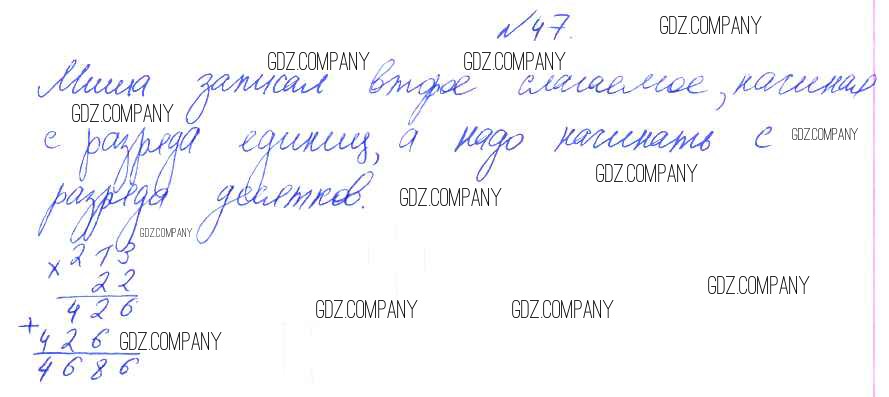 №47. GDZ.COMPANY
GDZ.COMPANY GDZ.COMPANY
Миша записал второе слагаемое, начиная
GDZ.COMPANY
с разряда единиц, а надо начинать с GDZ.COMPANY
GDZ.COMPANY
разряда десятков. GDZ.COMPANY
GDZ.COMPANY
× 213
22
GDZ.COMPANY
426 GDZ.COMPANY GDZ.COMPANY
+ 426 GDZ.COMPANY
4686